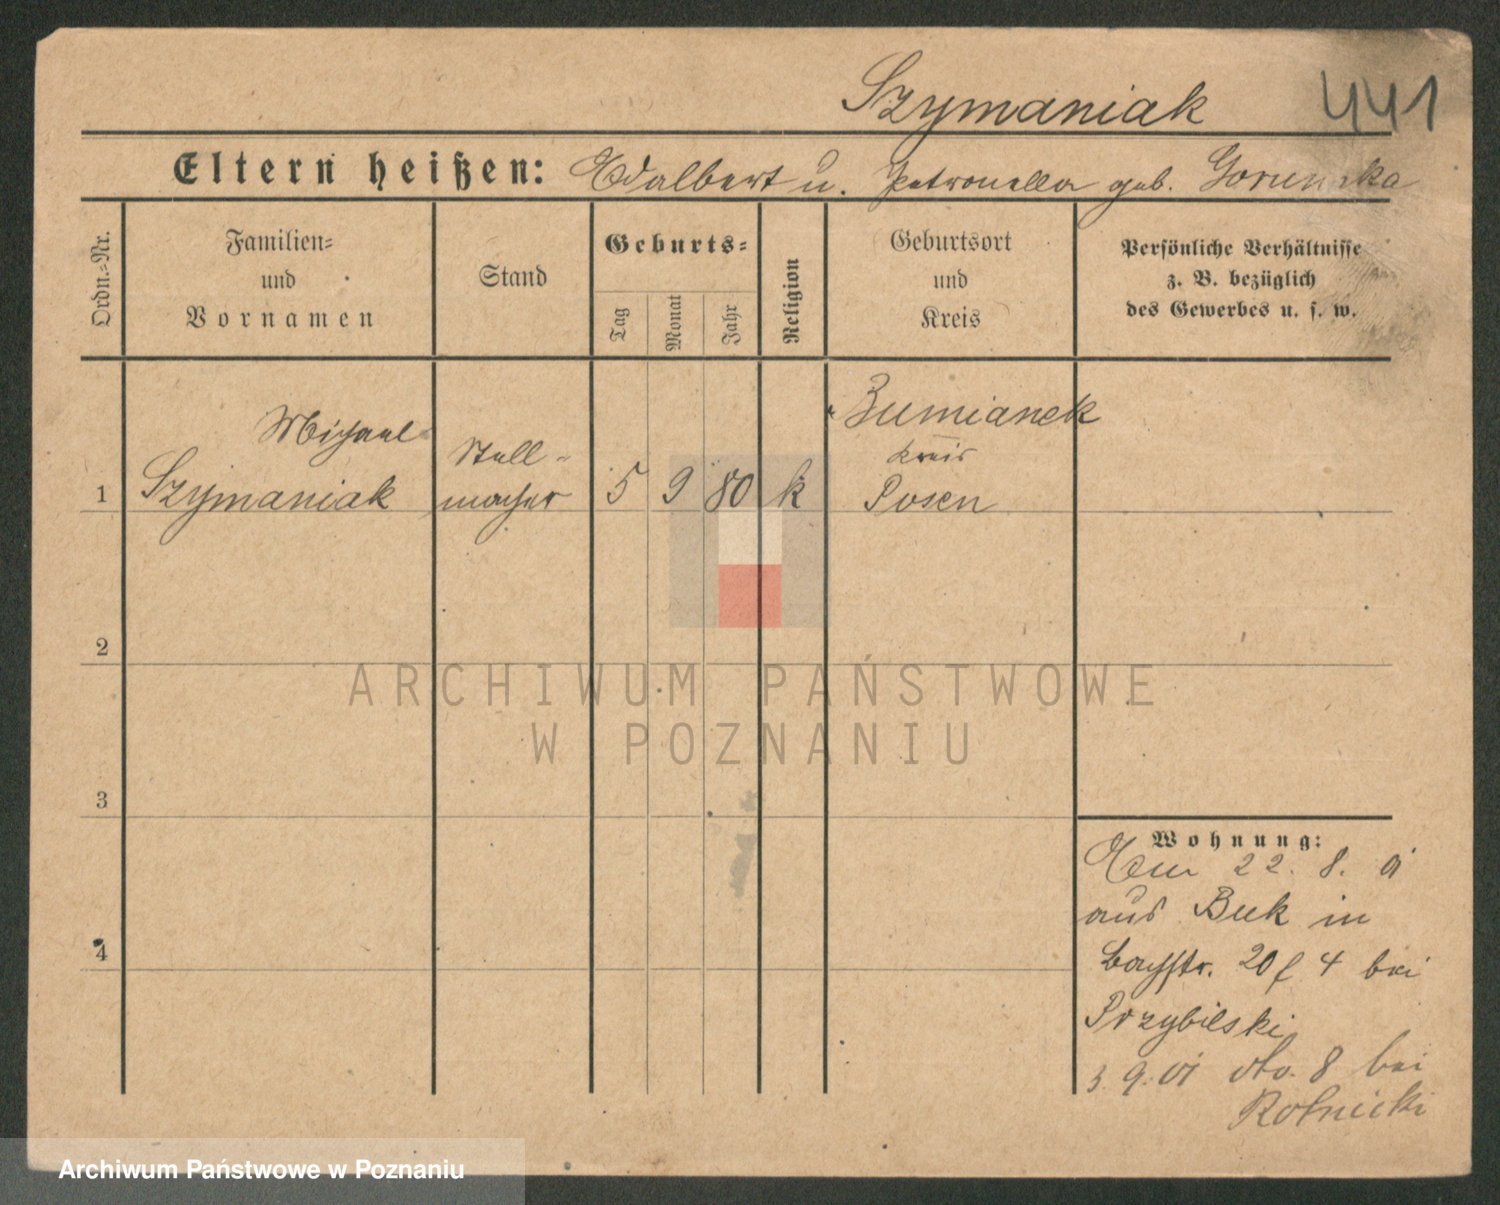 Szymaniak 441
Eltern heißen: Adalbert u. Petronella geb.
Ordn.-Nr.
Familien-
und
Vornamen
Stand
Geburts-
Tag
Monat
Jahr
Religion
Geburtsort
und
Kreis
Persönliche Verhältnisse
z. B. bezüglich
des Gewerbes u. s. w.
1
Michael
Szymaniak
Stell-
macher
5
9
80
k
Zumianek
Kreis
Posen
2
3
4
Wohnung:
22. 8. 01
aus Buk in
Bachstr. 20 4 bei
Przybilski
3. 9. 01 dto. 8 bei
Rotnicki
ARCHIWUM PAŃSTWOWE
W POZNANIU
Archiwum Państwowe w Poznaniu